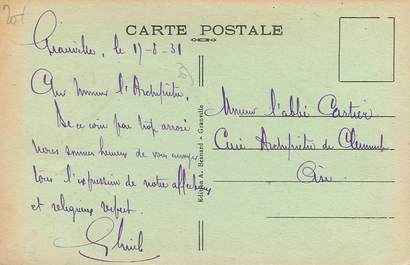 CARTE POSTALE
Granville, le 17-8-31
Monsieur l'Archiprêtre,
De ce coin pas trop arrosé
nous sommes heureux de vous envoyer
tous l'expression de notre affectueux
et religieux respect.
Edition A. Besnard - Granville
Monsieur l'abbé Cartier
Curé Archiprêtre de Clermont
Oise